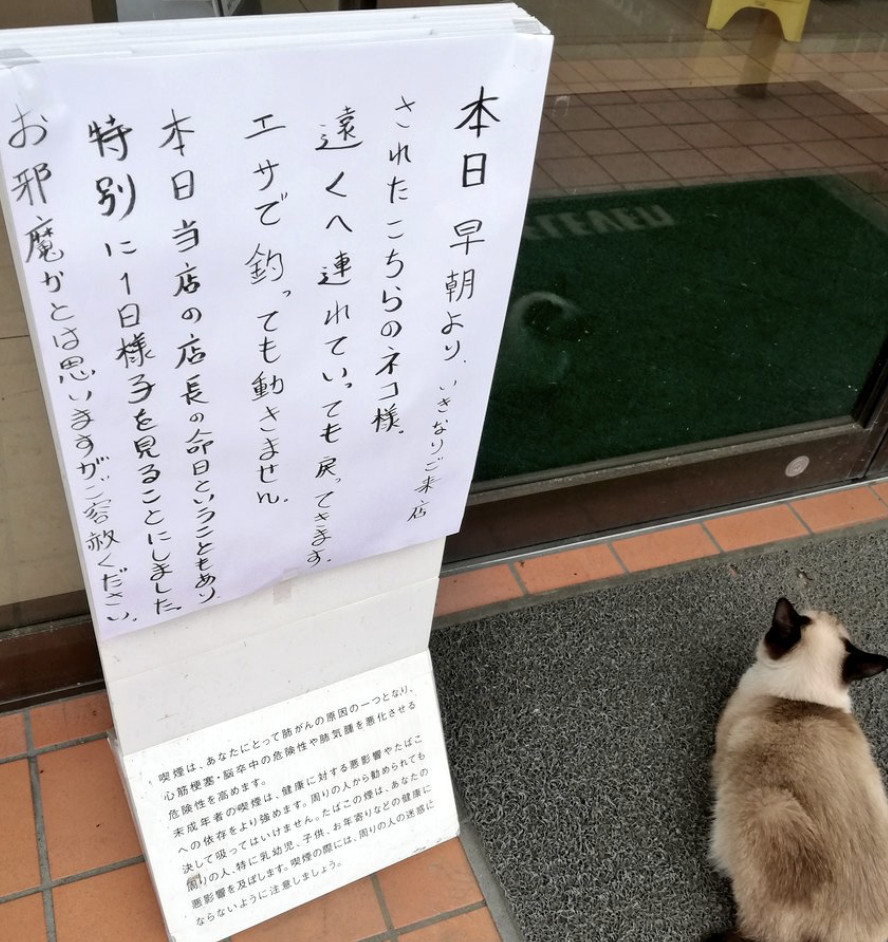 本日早朝より、いきなりご来店
されたこちらのネコ様。
遠くへ連れていっても戻ってきます。
エサで釣っても動きません。
本日当店の店長の命日ということもあり
特別に1日様子を見ることにしました。
お邪魔かとは思いますがご容赦ください。
喫煙は、あなたにとって肺がんの原因の一つとなり、
心筋梗塞・脳卒中の危険性や肺気腫を悪化させる
危険性を高めます。
未成年者の喫煙は、健康に対する悪影響やたばこ
への依存をより強めます。周りの人から勧められても
決して吸ってはいけません。たばこの煙は、あなたの
周りの人、特に乳幼児、子供、お年寄りなどの健康に
悪影響を及ぼします。喫煙の際には、周りの人の迷惑に
ならないように注意しましょう。
ELEVEn